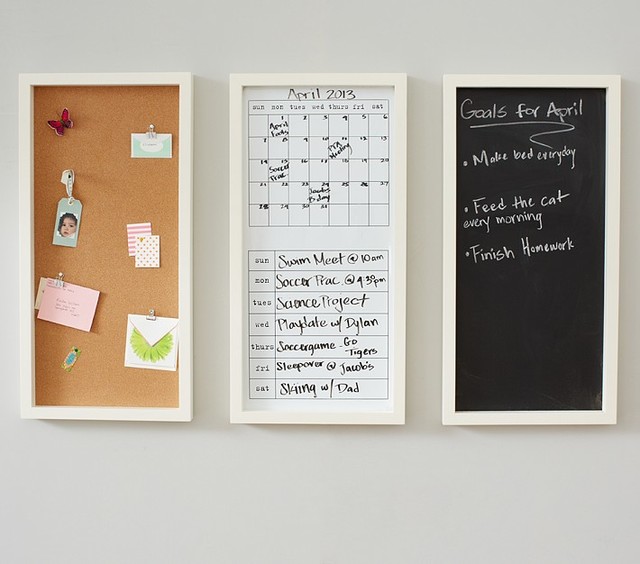 April 2013
sun mon tues wed thurs fri sat
1 2 3 4 5 6
April
Fools
7 8 9 10 11 12 13
PTA
Meeting
14 15 16 17 18 19 20
Soccer
Prac
21 22 23 24 25 26 27
Jacob's
B-day
28 29 30 31
sun Swim Meet @ 10am
mon Soccer Prac @ 4:30pm
tues Science Project
wed Playdate w/ Dylan
thurs Soccergame - Go
Tigers
fri Sleepover @ Jacob's
sat Skiing w/ Dad
Goals for April
• Make bed everyday
• Feed the cat
every morning
• Finish Homework